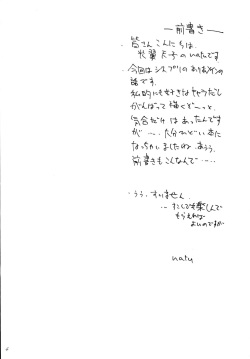 ―前書き―
・皆さんこんにちは、
子のnatuです
・今回はシスプリの
話です。
私的にも好きなキャラだし
がんばって描くぞーっと、
気合だけはあったんですが
が…
なっちゃいましたね、あうう
前書きもこんなんで……
・うう、すいません。
…すこしでも楽しんで
もらえれば
よいのですが
natu